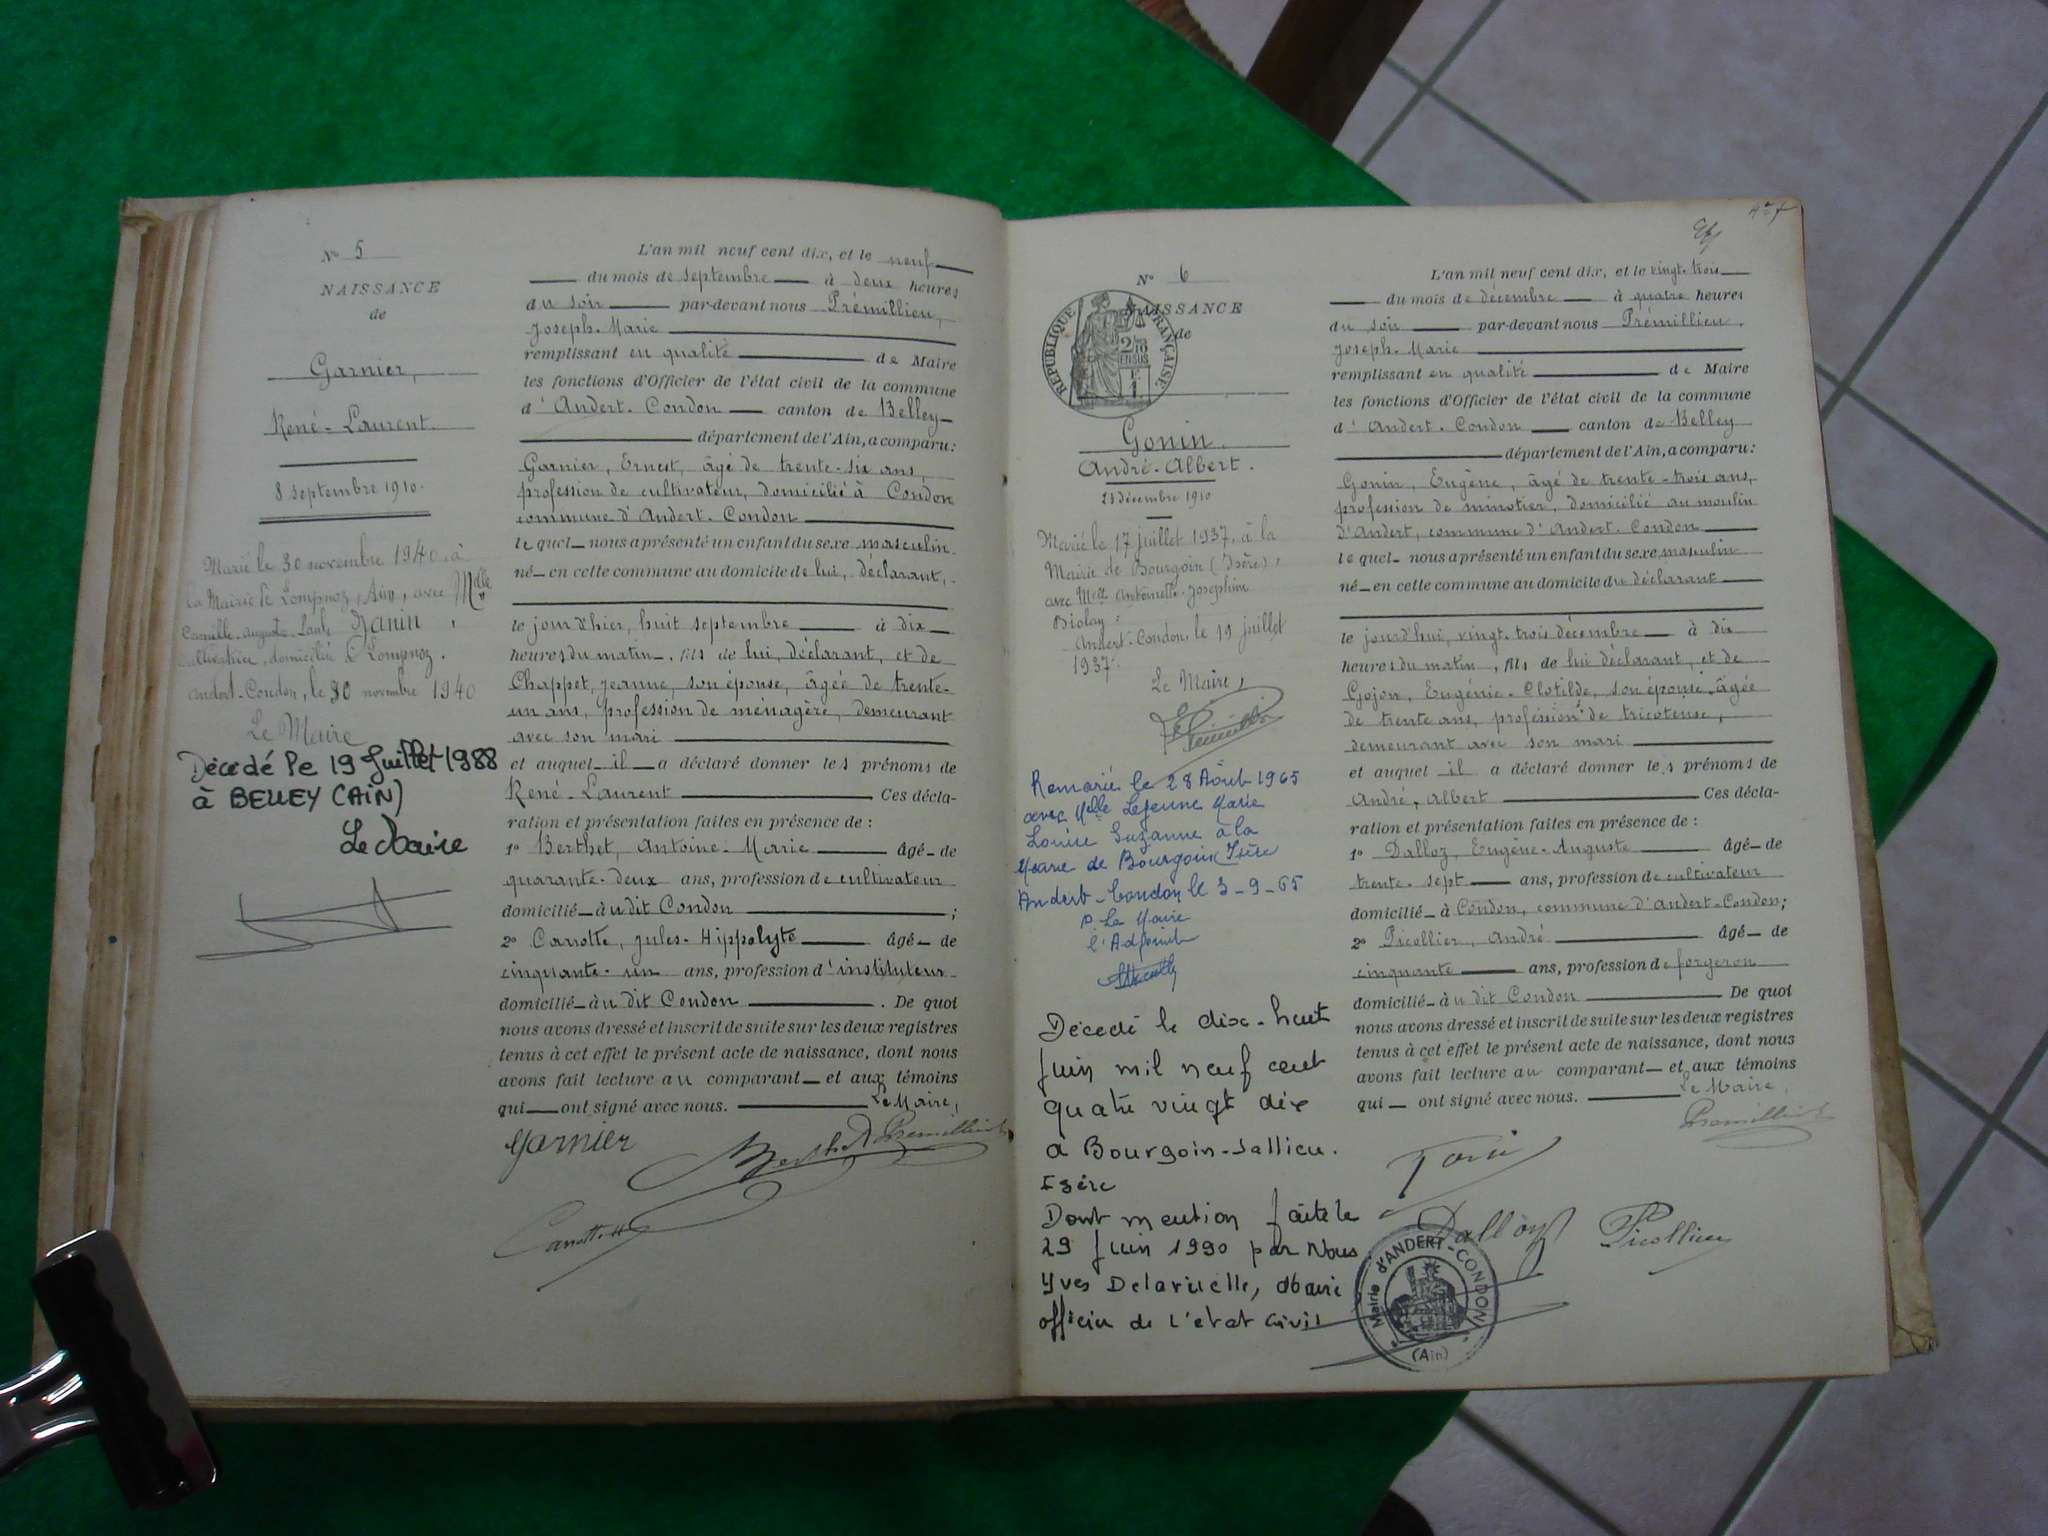 N° 5
NAISSANCE
de
Garnier,
René-Laurent.
8 septembre 1910.
Marié le 30 novembre 1940, à
la Mairie de Lompnaz, Ain, avec Melle
Camille-Augusta-Paule Zanin,
cultivatrice, domiciliée à Lompnaz.
Andert-Condon, le 30 novembre 1940
Le Maire
Décédé le 19 Juillet 1988
à BELLEY (AIN)
Le Maire
L'an mil neuf cent dix, et le neuf
du mois de septembre à deux heures
du soir par-devant nous Prémillieu,
Joseph-Marie
remplissant en qualité de Maire
les fonctions d'Officier de l'état civil de la commune
d'Andert-Condon canton de Belley
département de l'Ain, a comparu:
Garnier, Ernest, âgé de trente-six ans,
profession de cultivateur, domicilié à Condon
commune d'Andert-Condon
lequel nous a présenté un enfant du sexe masculin
né en cette commune au domicile de lui, déclarant,
le jour d'hier, huit septembre à dix
heures du matin, fils de lui, déclarant, et de
Chappet, Jeanne, son épouse, âgée de trente-
un ans, profession de ménagère, demeurant
avec son mari
et auquel il a déclaré donner les prénoms de
René-Laurent Ces décla-
ration et présentation faites en présence de :
1° Berthet, Antoine-Marie âgé de
quarante-deux ans, profession de cultivateur
domicilié au dit Condon ;
2° Carrotte, Jules-Hippolyte âgé de
cinquante-un ans, profession d'instituteur
domicilié au dit Condon. De quoi
nous avons dressé et inscrit de suite sur les deux registres
tenus à cet effet le présent acte de naissance, dont nous
avons fait lecture au comparant et aux témoins
qui ont signé avec nous. Le Maire,
Garnier Berthet Prémillieu
Carrotte
N° 6
NAISSANCE
de
RÉPUBLIQUE FRANÇAISE
2/10
EN SUS
Gonin
André-Albert.
23 décembre 1910
Marié le 17 juillet 1937, à la
Mairie de Bourgoin (Isère),
avec Melle Antoinette-Joséphine
Biolay.
Andert-Condon, le 19 juillet
1937.
Le Maire,
Remarié le 28 Août 1965
avec Melle Lejeune Marie
Louise Suzanne à la
Mairie de Bourgoin Isère
Andert-Condon le 3-9-65
P. Le Maire
l'Adjoint
Décédé le dix-huit
Juin mil neuf cent
quatre vingt dix
à Bourgoin-Jallieu.
Isère
Dont mention faite le
29 Juin 1990 par Nous
Yves Delaruelle, Maire
officier de l'état civil
L'an mil neuf cent dix, et le vingt-trois
du mois de décembre à quatre heures
du soir par-devant nous Prémillieu,
Joseph-Marie
remplissant en qualité de Maire
les fonctions d'Officier de l'état civil de la commune
d'Andert-Condon canton de Belley
département de l'Ain, a comparu:
Gonin, Eugène, âgé de trente-trois ans,
profession de minotier, domicilié au moulin
d'Andert, commune d'Andert-Condon
lequel nous a présenté un enfant du sexe masculin
né en cette commune au domicile du déclarant
le jourd'hui, vingt-trois décembre à dix
heures du matin, fils de lui déclarant, et de
Gojon, Eugénie-Clotilde, son épouse, âgée
de trente ans, profession de tricoteuse,
demeurant avec son mari
et auquel il a déclaré donner les prénoms de
André, Albert Ces décla-
ration et présentation faites en présence de :
1° Dalloz, Eugène-Auguste âgé de
trente-sept ans, profession de cultivateur
domicilié à Condon, commune d'Andert-Condon;
2° Picollier, André âgé de
cinquante ans, profession de forgeron
domicilié au dit Condon De quoi
nous avons dressé et inscrit de suite sur les deux registres
tenus à cet effet le présent acte de naissance, dont nous
avons fait lecture au comparant et aux témoins
qui ont signé avec nous. Le Maire,
Prémillieu
Gonin
Dalloz Picollier
Mairie d'ANDERT-CONDON
(Ain)